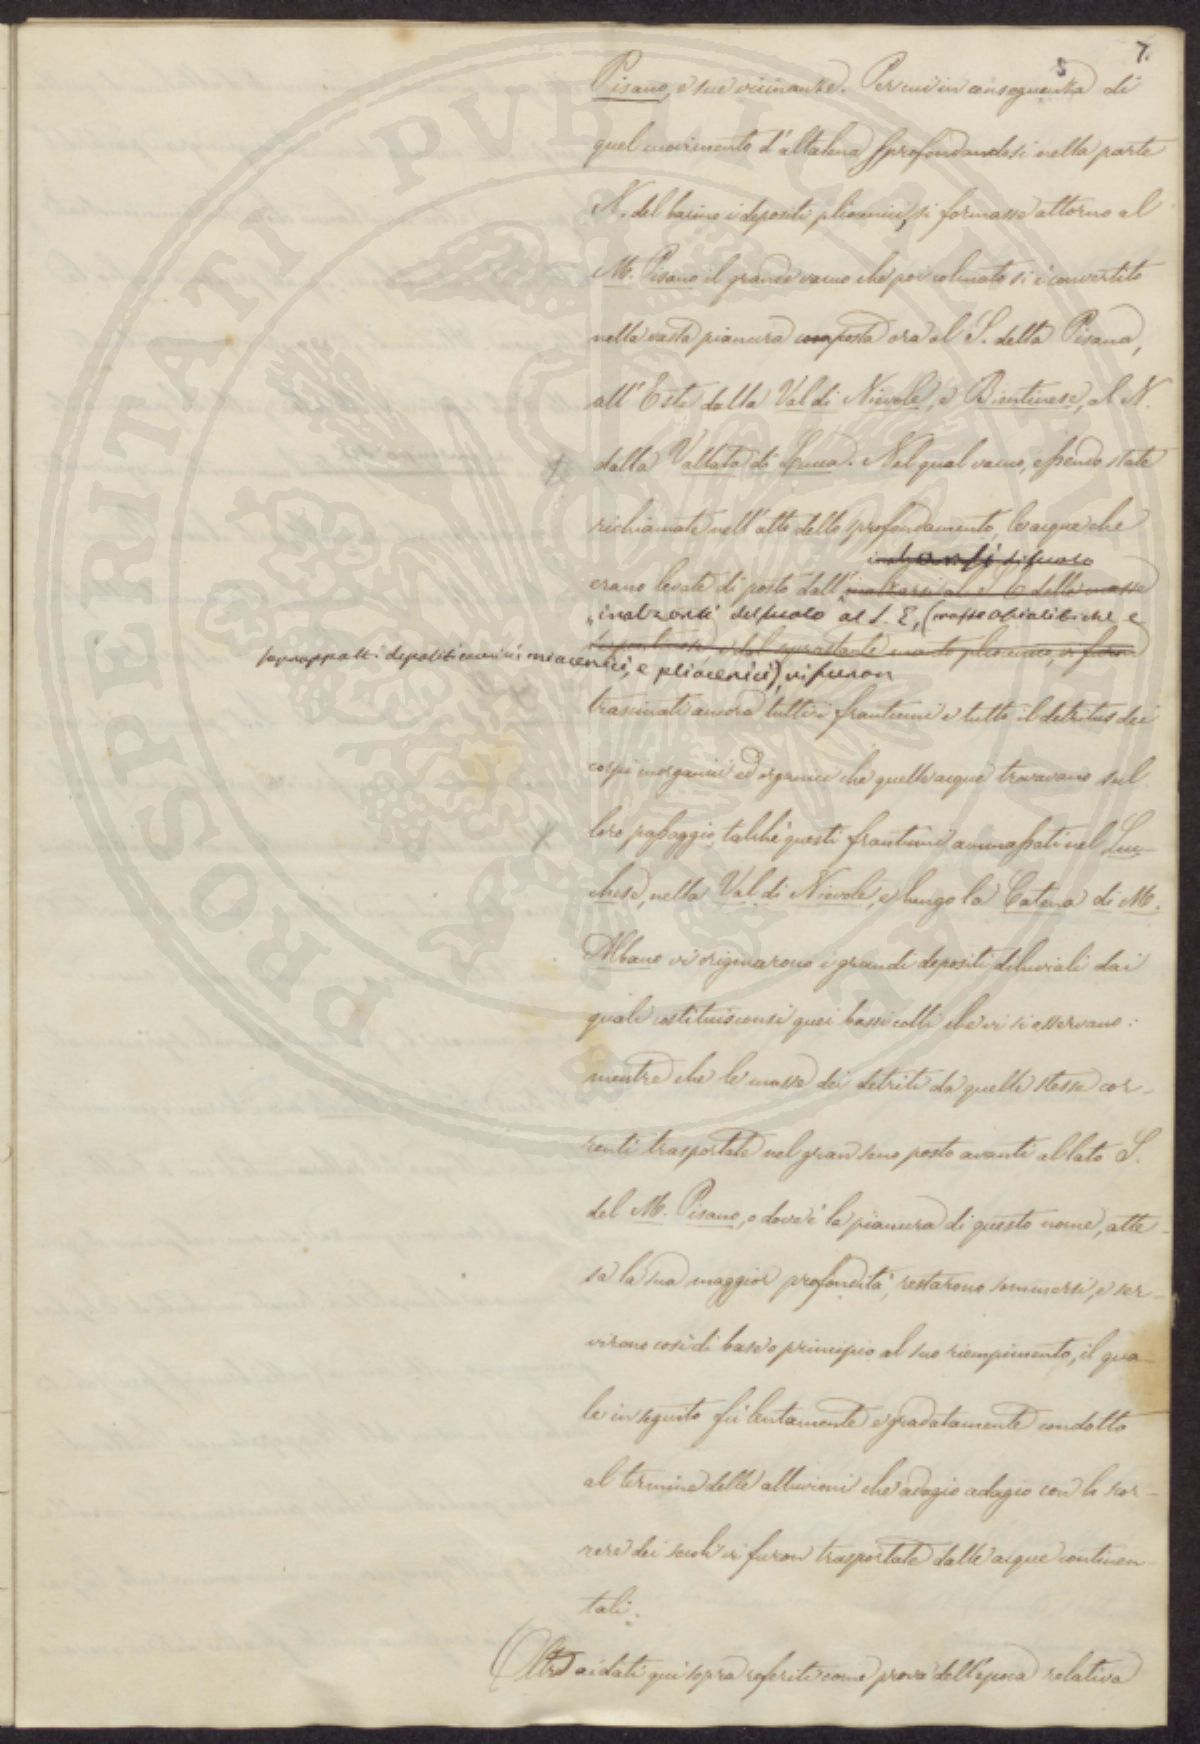 7.
5
Pisano, e sue vicinanze. Per cui in conseguenza di
quel movimento d'altalena sprofondandosi nella parte
N. del bacino i depositi pliocenici, si formasse attorno al
M. Pisano il grande vacuo che poi colmato si è convertito
nella vasta pianura composta ora al S. della Pisana,
all'Este dalla Val di Nievole, e Bientinese, al N.
dalla Vallata di Lucca. Nel qual vacuo, essendo state
richiamate nell'atto dello sprofondamento, le acque che
inalzarsi di suolo
erano levate di posto dall' inalzarsi al S E delle masse
inalzarsi del suolo al S. E, (masse ofiolitiche e
serpentinose, e dal soprastante manto pliocenico, vi furon
soprapposti depositi miocenici, e pliocenici), vi furon
trascinati ancora tutti i frantumi e tutto il detritus dei
corpi inorganici ed organici che quelle acque trovavano sul
loro passaggio, talchè questi frantumi ammassati nel Luc-
chese, nella Val di Nievole, e lungo la Catena di M.
Albano vi originarono i grandi depositi diluviali dai
quali costituisconsi quei bassi colli che vi si osservano:
mentre che le masse dei detriti da quelle stesse cor-
renti trasportate nel gran seno posto avanti al lato S.
del M. Pisano, o dove è la pianura di questo nome, atte-
sa la sua maggior profondità, restarono sommersi, e ser-
virono così di base o principio al suo riempimento, il qua-
le in seguito fù lentamente e gradatamente condotto
al termine dalle alluvioni che adagio adagio con lo scor-
rere dei secoli vi furon trasportate dalle acque continen-
tali.
Oltre ai dati qui sopra referiti come prova dell'epoca relativa
PROSPERITATI PVBLICAE